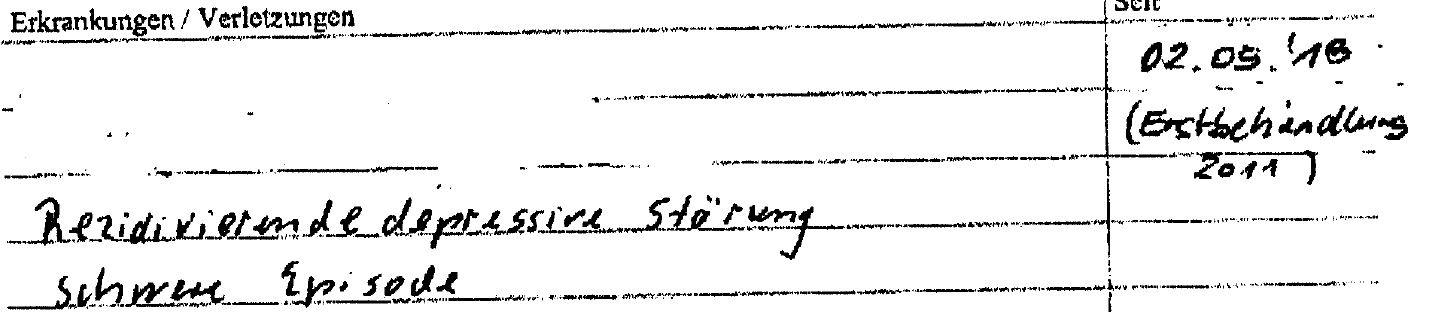 Erkrankungen / Verletzungen
Seit
02.05.'18
(Erstbehandlung
2011)
Rezidivierende depressive Störung
schwere Episode